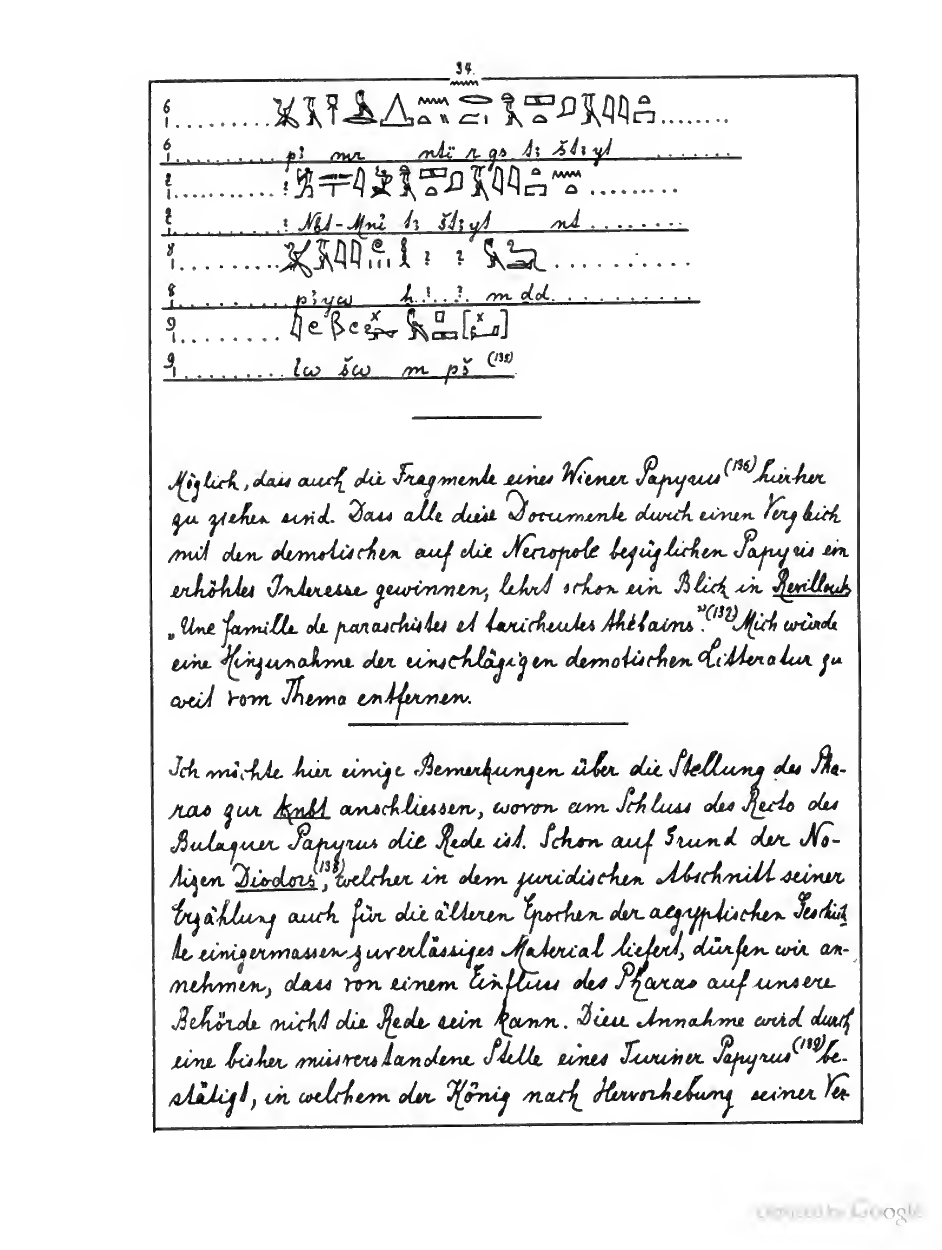 34.
6
6 p3 mr ntï r gs t3 št3yt
? Nbt-Mni t3 št3yt nt
8
8 p3yw h.?..?. m dd.
9
9 iw šw m pš (135)
Möglich, dass auch die Fragmente eines Wiener Papyrus (136) hierher
zu ziehen sind. Dass alle diese Documente durch einen Vergleich
mit den demotischen auf die Necropole bezüglichen Papyris ein
erhöhtes Interesse gewinnen, lehrt schon ein Blick in Revillouts
„Une famille de paraschistes et taricheutes thébains." (137) Mich würde
eine Hinzunahme der einschlägigen demotischen Litteratur zu
weit vom Thema entfernen.
Ich möchte hier einige Bemerkungen über die Stellung des Pha-
rao zur knbt anschliessen, wovon am Schluss des Recto des
Bulaquer Papyrus die Rede ist. Schon auf Grund der No-
tizen Diodors, (138) welcher in dem juridischen Abschnitt seiner
Erzählung auch für die älteren Epochen der aegyptischen Geschich
te einigermassen zuverlässiges Material liefert, dürfen wir an-
nehmen, dass von einem Einfluss des Pharao auf unsere
Behörde nicht die Rede sein kann. Diese Annahme wird durch
eine bisher missverstandene Stelle eines Turiner Papyrus (139) be-
stätigt, in welchem der König nach Hervorhebung seiner Ver-
Digitized by Google